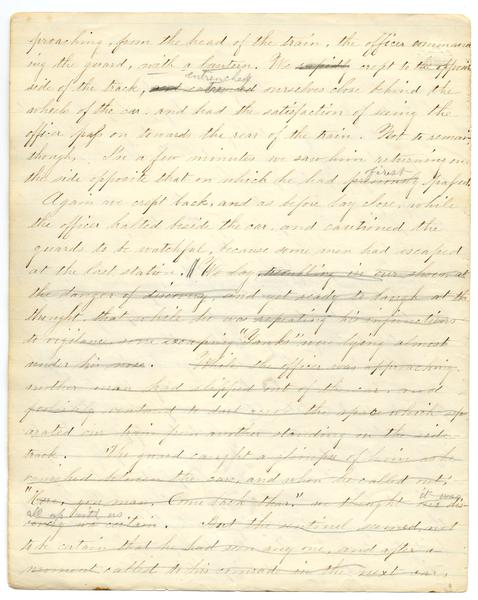 proaching, from the head of the train, the officer command
ing the guard, with a lantern. We rapidly crept to the opposite
entrenched
side of the track, and ourselves close behind the
wheels of the car and had the satisfaction of seeing the
officer pass on toward the rear of the train. Not to remain
though. In a few minutes we saw him returning on
first
the side opposite that on which he had previously passed
Again we crept back, and as before lay close, while
the officer halted beside the car, and cautioned the
guards to be watchful, because some men had escaped
at the last station. We lay trembling in our shoes, at
the danger of discovery, and yet ready to laugh at the
thought, that while he was repeating his injunctions
to vigilance some escaping "Yanks" were lying almost
under his nose. While the officer was approaching,
another man had slipped out of the car, and
ventured to dart across the space which sep
arated our train from another standing on the side
track. The guard caught a glimpse of him as he
vanished between the cars, and when he called out,
it was
you man, Come back thar." we thought our dis-
all up with us
covery was certain. But the sentinel seemed not
to be certain that he had seen any one, and after a
moment called to his comrade in the next car,